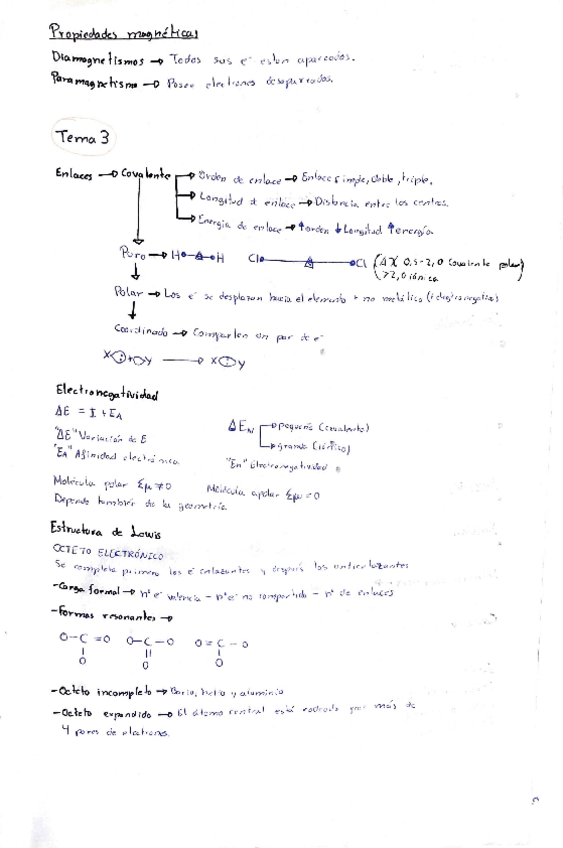 Propiedades magnéticas
Diamagnetismos → Todos sus e⁻ estan apareados.
Paramagnetismo → Posee electrones desapareados.
Tema 3
Enlaces → Covalente → Orden de enlace → Enlace simple, doble, triple.
→ Longitud de enlace → Distancia entre los centros.
→ Energía de enlace → ↑orden ↓Longitud ↑energía
Puro → H H Cl Cl (Δχ 0,5-2,0 Covalente polar)
>2,0 iónica
Polar → Los e⁻ se desplazan hacia el elemento + no metálico (+ electronegativo)
Coordinado → Comparten un par de e⁻
X + Y → X Y
Electronegatividad
ΔE = I + EA
"ΔE" Variación de E
"EA" Afinidad electrónica
ΔEN → pequeña (covalente)
→ grande (iónico)
"En" Electronegatividad
Molécula polar Σμ ≠ 0 Molécula apolar Σμ = 0
Depende también de la geometría
Estructura de Lewis
OCTETO ELECTRÓNICO
Se completa primero los e⁻ enlazantes y después los antienlazantes
- Carga formal → nº e⁻ valencia - nº e⁻ no compartido - nº de enlaces
- Formas resonantes →
O-C=O O-C-O O=C-O
O O O
- Octeto incompleto → Boro, berilio y aluminio
- Octeto expandido → El átomo central está rodeado por más de
4 pares de electrones.